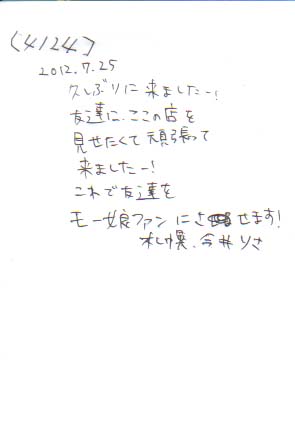 (4124)
2012.7.25
久しぶりに来ましたー!
友達に、ここの店を
見せたくて頑張って
来ましたー!
これで友達を
モー娘ファンにさせます!
札幌、今井りさ